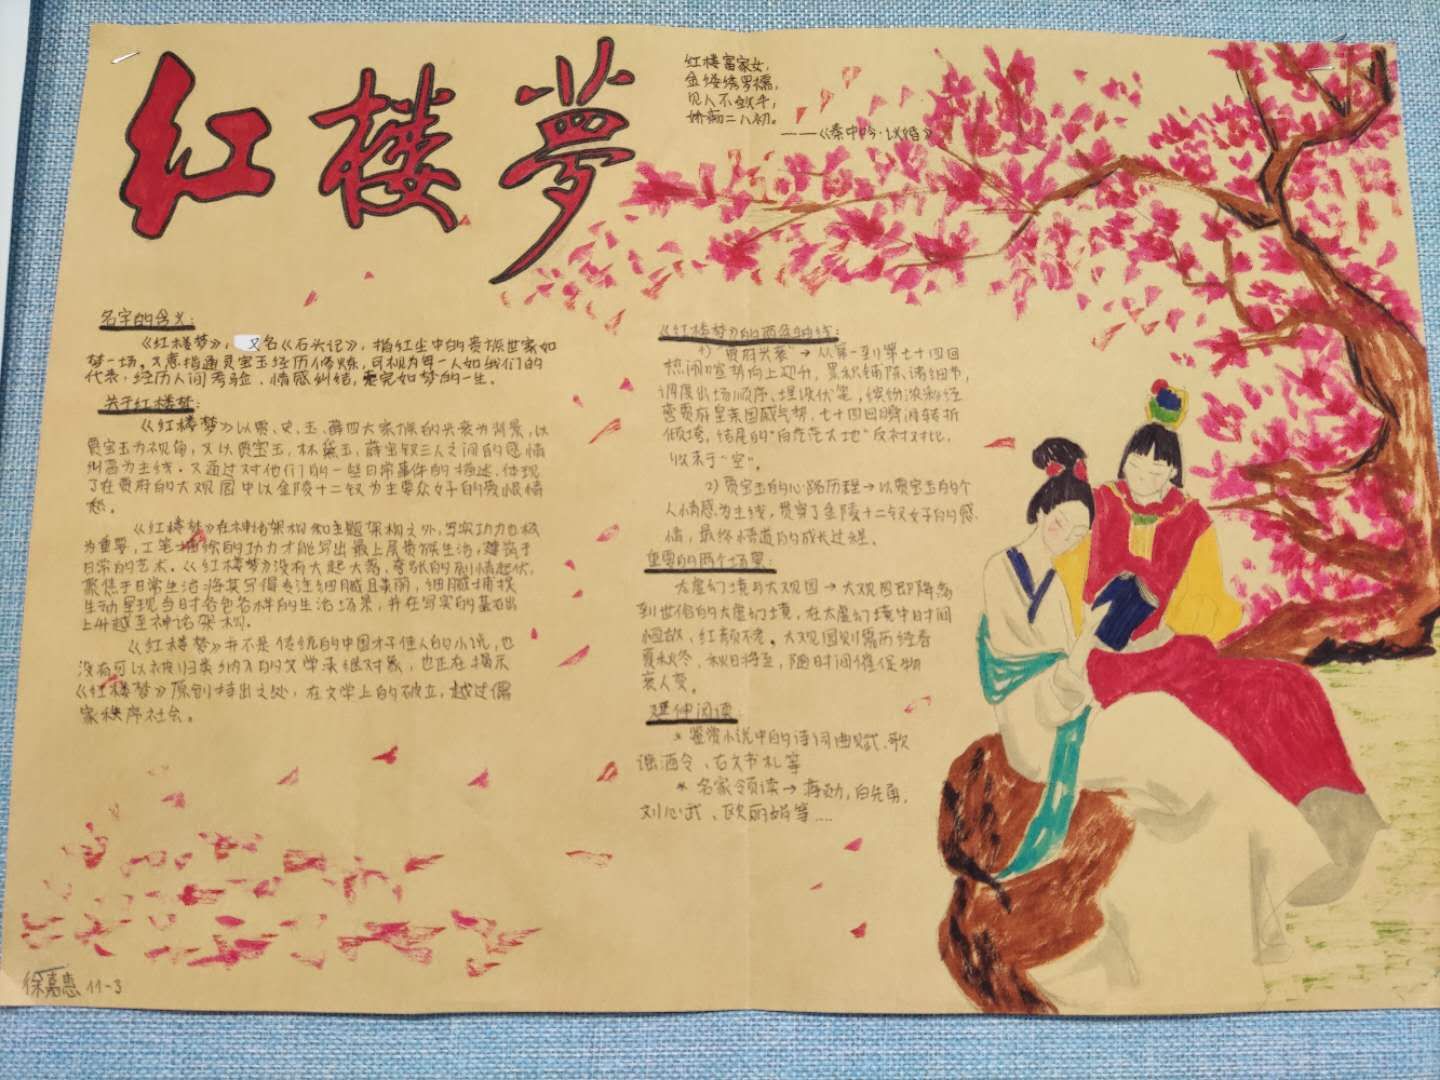 红楼夢
红楼富家女，
金缕绣罗襦，
见人不敛手，
娇痴二八初。
——《秦中吟·议婚》
名字的含义：
《红楼梦》，又名《石头记》，指红尘中的贵族世家如
梦一场。又意指通灵宝玉经历修炼，可视为每一人如我们的
代表，经历人间考验、情感纠结，完如梦的一生。
关于红楼梦：
《红楼梦》以贾、史、王、薛四大家族的兴衰为背景，以
贾宝玉为视角，又以贾宝玉，林黛玉，薛宝钗三人之间的感情
纠葛为主线。又通过对他们的一些日常事件的描述，体现
了在贾府的大观园中以金陵十二钗为主要众女子的爱恨情
愁。
《红楼梦》在神话架构和主题架构之外，写实功力也极
为重要，工笔描绘的功力才能写出最上层贵族生活，建筑于
日常的艺术。《红楼梦》没有大起大落，夸张的剧情起伏，
聚焦于日常生活，将其写得专注细腻且美丽，细腻捕捉
生动呈现当时各色各样的生活场景，并在写实的基础出
上升越至神话架构。
《红楼梦》并不是传统的中国才子佳人的小说，也
没有可以被归类纳入的文学承继对象，也正在揭示
《红楼梦》原创特出之处，在文学上的破立，越过儒
家秩序社会。
《红楼梦》的两条轴线：
1）“贾府兴衰”→从第一到第七十四回
热闹喧势向上攀升，累积铺陈、诸细节，
调度出场顺序、埋设伏笔，缤纷浓彩经
营贾府皇亲国戚气势，七十四回瞬间转折
倾垮，结尾的“白茫茫大地”反衬对比，
收束于“空”。
2）贾宝玉的心路历程→以贾宝玉的个
人情感为主线，贯穿了金陵十二钗女子的的感
情，最终悟道的成长过程。
重要的两个场景：
太虚幻境与大观园→大观园即降落
到世俗的太虚幻境，在太虚幻境中时间
恒故，红颜不老。大观园则需历经春
夏秋冬，秋日将至，随时间催促物
哀人变。
延伸阅读
*鉴赏小说中的诗词曲赋、歌
谣酒令、古文书札等
* 名家领读→蒋勋，白先勇，
刘心武、欧丽娟等....
徐嘉惠 11-3